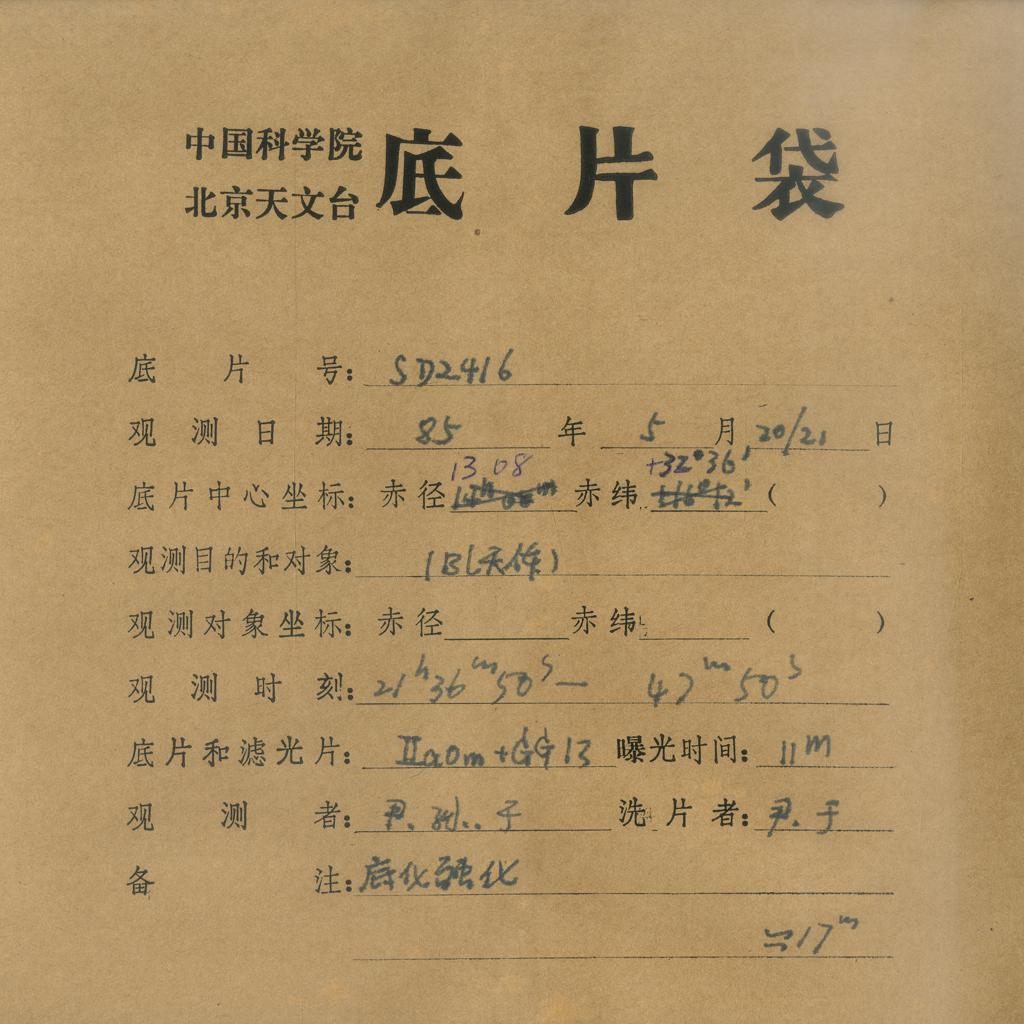 中国科学院
北京天文台
底片袋
底片号: SD2416
观测日期: 85年 5月 20/21日
13 08 +32°36′
底片中心坐标: 赤径 赤纬 ( )
观测目的和对象: 1B(天体)
观测对象坐标: 赤径 赤纬 ( )
观测时刻: 21h36m50s— 47m50s
底片和滤光片: IIaOm+GG13 曝光时间: 11m
观测者: 尹.孙..于 洗片者: 尹.于
备注: 底化强化
17m